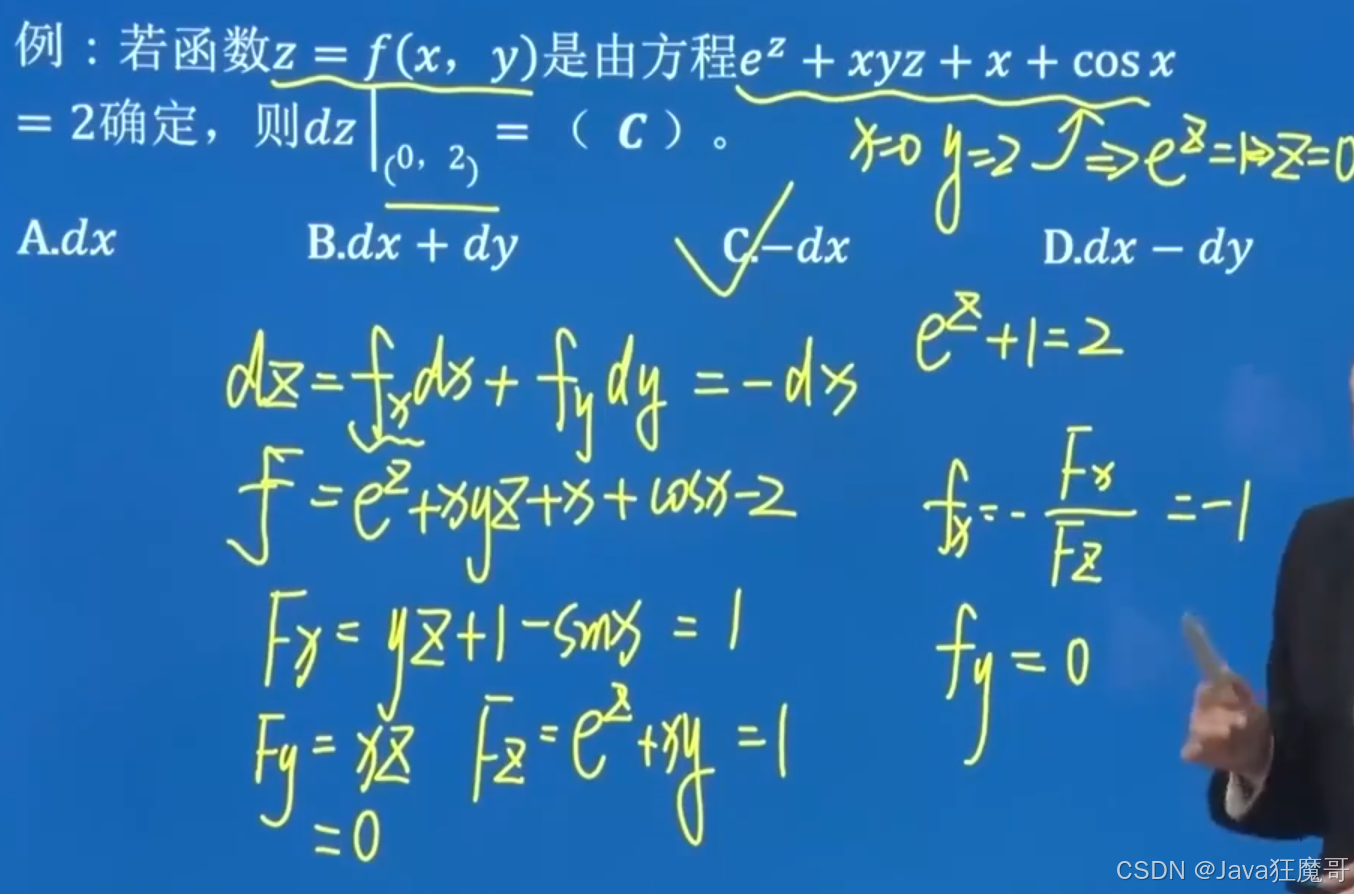 例：若函数z = f(x，y)是由方程e^z + xyz + x + cos x
= 2确定，则dz|(0，2) = （ C ）。
x=0 y=2 ⇒ e^z=1⇒z=0
A.dx B.dx + dy C.−dx D.dx − dy
e^z+1=2
dz=f_x dx+f_y dy=-dx
F=e^z+xyz+x+cosx-2
f_x=-F_x/F_z=-1
F_x=yz+1-sinx=1
f_y=0
F_y=xz F_z=e^z+xy=1
=0
CSDN @Java狂魔哥